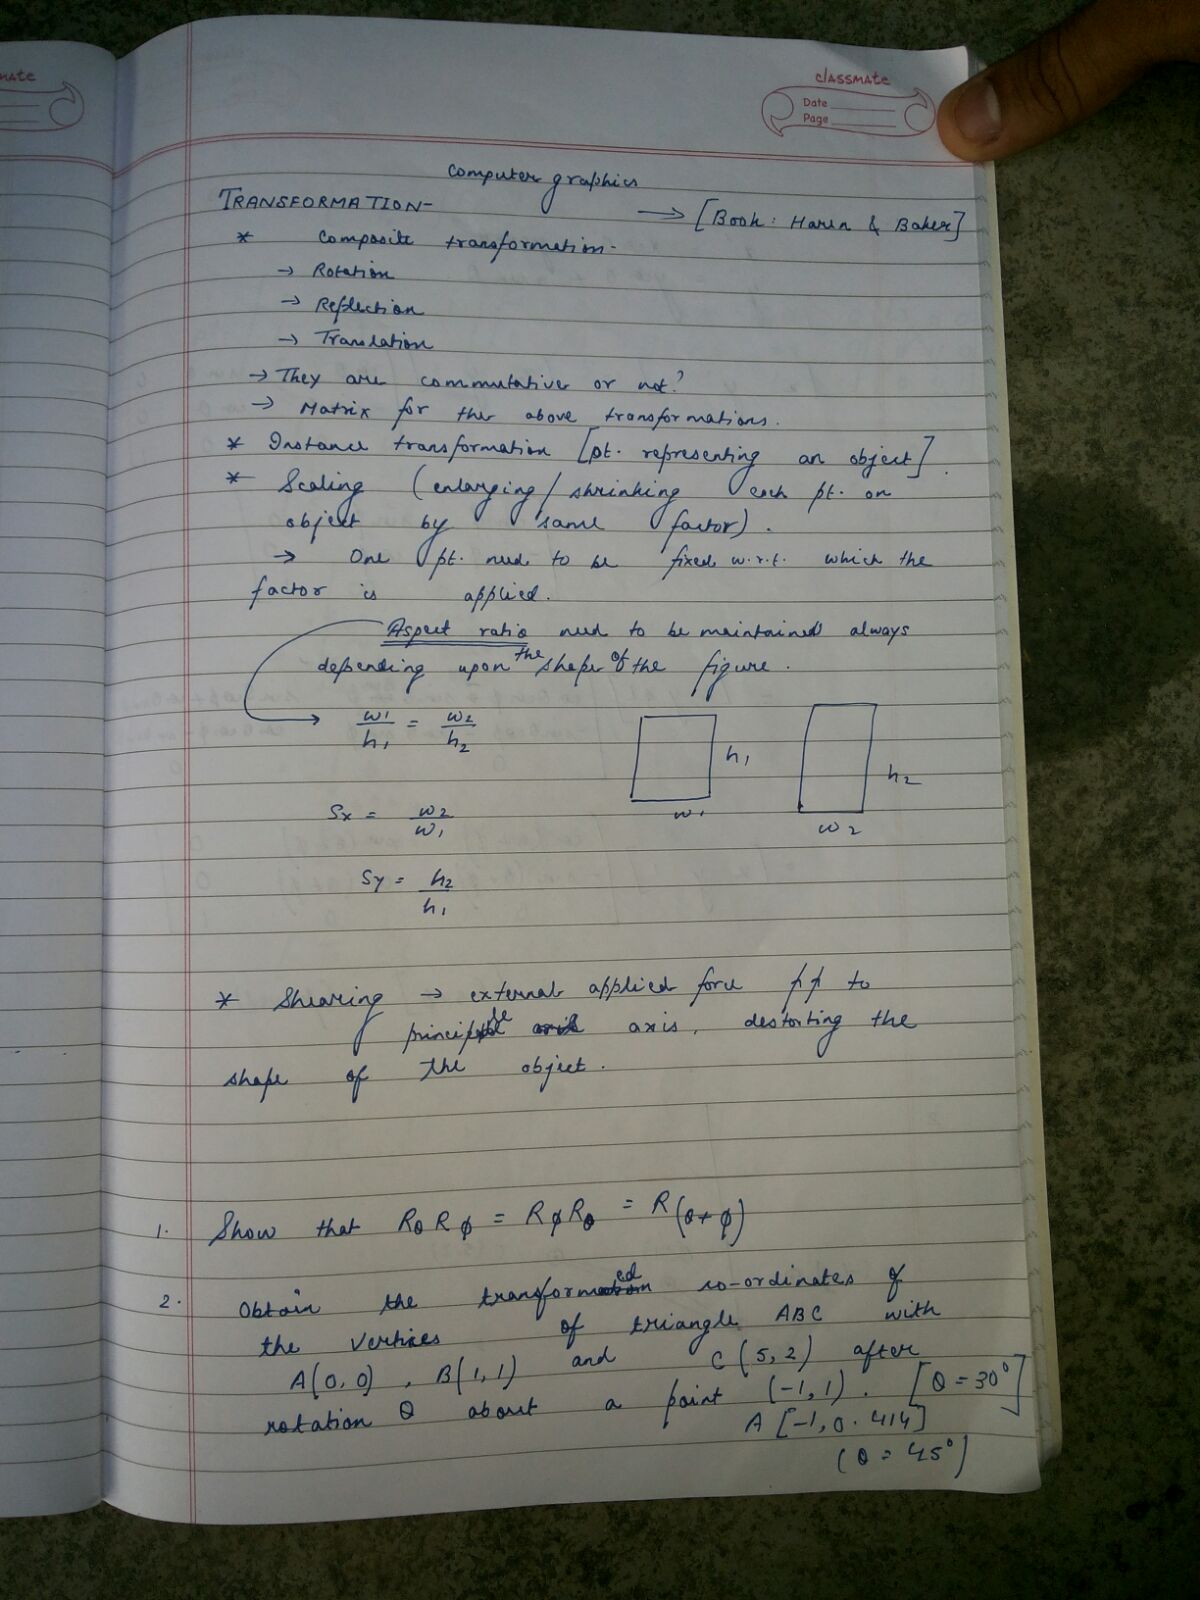 mate
classmate
Date
Page
Computer graphics
TRANSFORMATION-
→ [Book: Haren & Baker]
* Composite transformation-
→ Rotation
→ Reflection
→ Translation
→ They are commutative or not?
→ Matrix for the above transformations.
* Instance transformation [pt. representing an object].
* Scaling (enlarging/shrinking each pt. on
object by same factor).
→ One pt. need to be fixed w.r.t. which the
factor is applied.
Aspect ratio need to be maintained always
depending upon the shape of the figure.
w1/h1 = w2/h2
h1
h2
w1
w2
Sx = w2/w1
Sy = h2/h1
* Shearing → external applied force to
principle axis, destorting the
shape of the object.
1. Show that RθRφ = RφRθ = R(θ+φ)
2. Obtain the transformed co-ordinates of
the vertices of triangle ABC with
A(0,0), B(1,1) and C(5,2) after
rotation θ about a point (-1,1). [θ=30°]
A[-1,0.414]
(θ=45°)